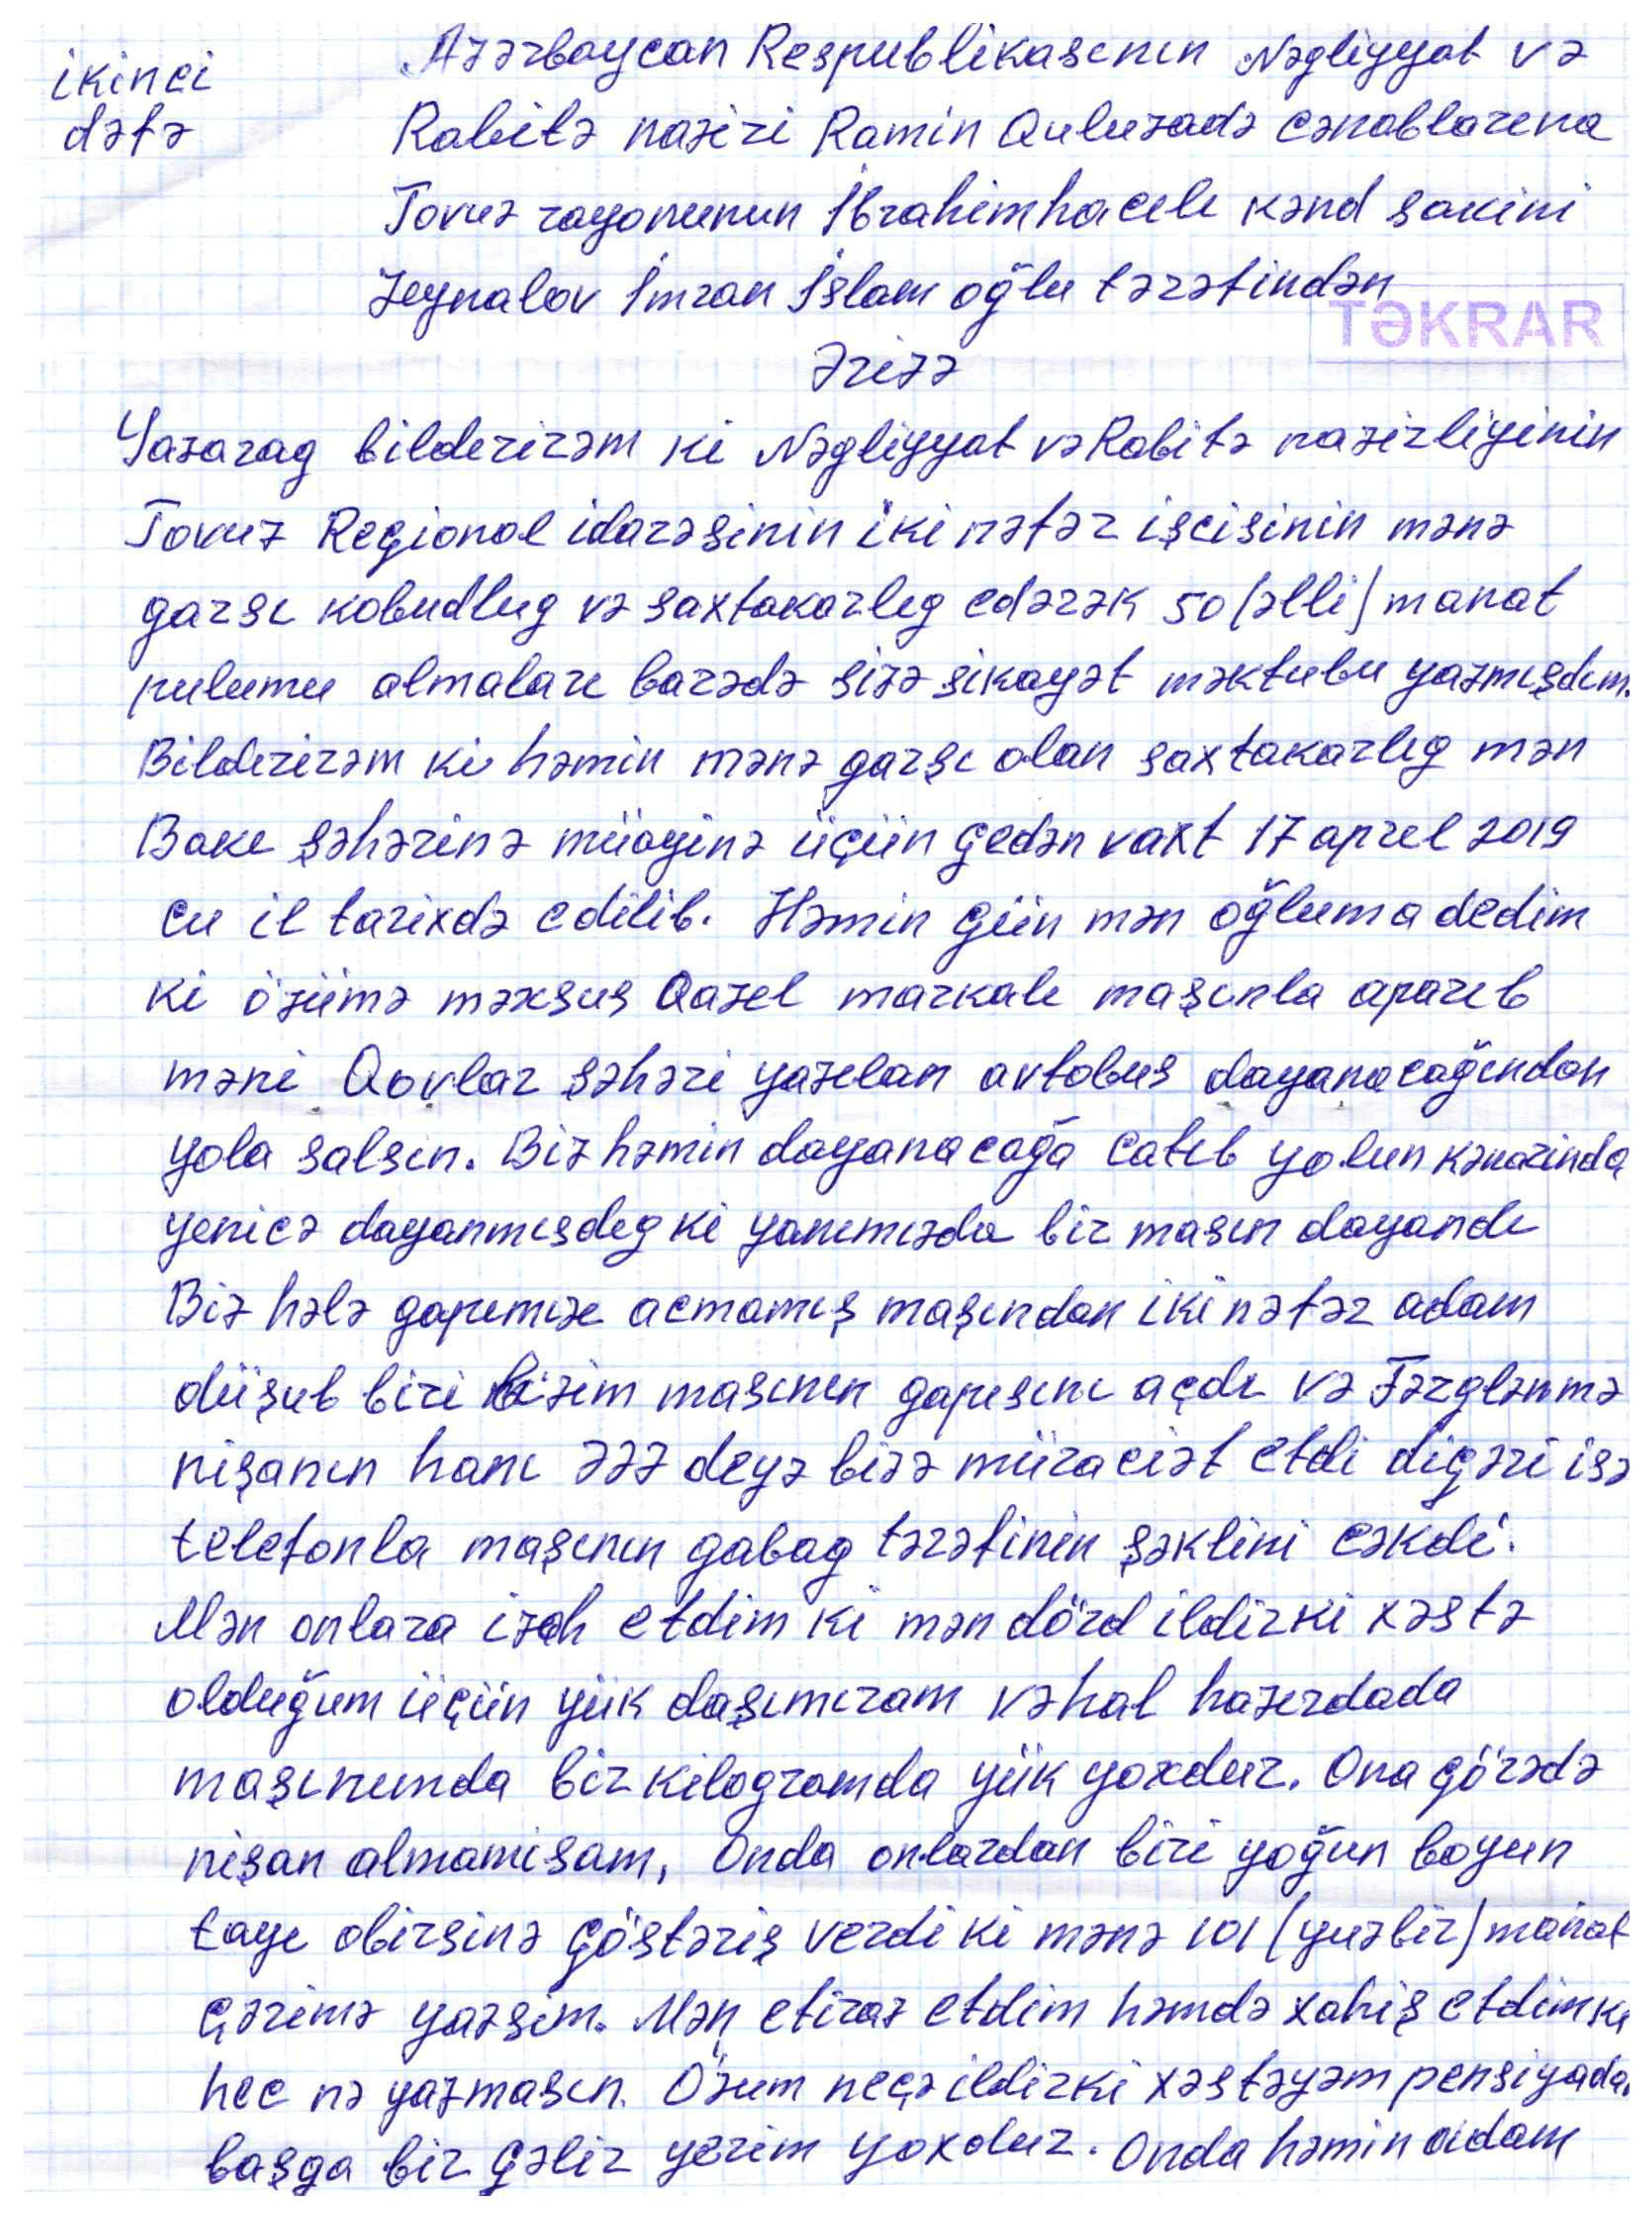 ikinci
dəfə
Azərbaycan Respublikasının Nəgliyyat və
Rabitə naziri Ramin Quluzadə cənablarına
Tovuz rayonunun İbrahimhacılı kənd sakini
Zeynalov İmran İslam oğlu tərəfindən
TƏKRAR
Ərizə
Yazarag bildirirəm ki Nəgliyyat və Rabitə nazirliyinin
Tovuz Regional idarəsinin iki nəfər işcisinin mənə
garsı kobudlug və saxtakarlıg edərək 50 (əlli) manat
pulumu almaları barədə sizə sikayət məktubu yazmışdım.
Bildirirəm ki həmin mənə garşı olan saxtakarlıg mən
Bakı şəhərinə müayinə üçün gedən vaxt 17 aprel 2019
cu il tarixdə edilib. Həmin gün mən oğluma dedim
ki özümə məxsus Qazel markalı maşınla aparıb
məni Qovlar şəhəri yazılan avtobus dayanacağından
yola salsın. Biz həmin dayanacağa catıb yolun kənarında
yenicə dayanmısdıg ki yanımızda bir masın dayandı
Biz hələ gapımızı acmamış maşından iki nəfər adam
düşub biri bizim masının gapısını açdı və Fərglənmə
nişanın hanı əəə deyə bizə müraciət etdi digəri isə
telefonla maşının gabag tərəfinin şəklini cəkdi.
Mən onlara izah etdim ki mən dörd ildirki xəstə
olduğum üçün yük daşımıram və hal hazırdada
maşınımda bir kilogramda yük yoxdur. Ona görədə
nişan almamisam, Onda onlardan biri yoğun boyun
tayı obirsinə göstəriş verdi ki mənə 101 (yuzbir) manat
çərimə yazsım. Mən etiraz etdim həmdə xahiş etdim ki
hec nə yazmasın. Özum neçə ildirki xəstəyəm pensiyada.
başga bir gəlir yerim yoxdur. Onda həmin adam